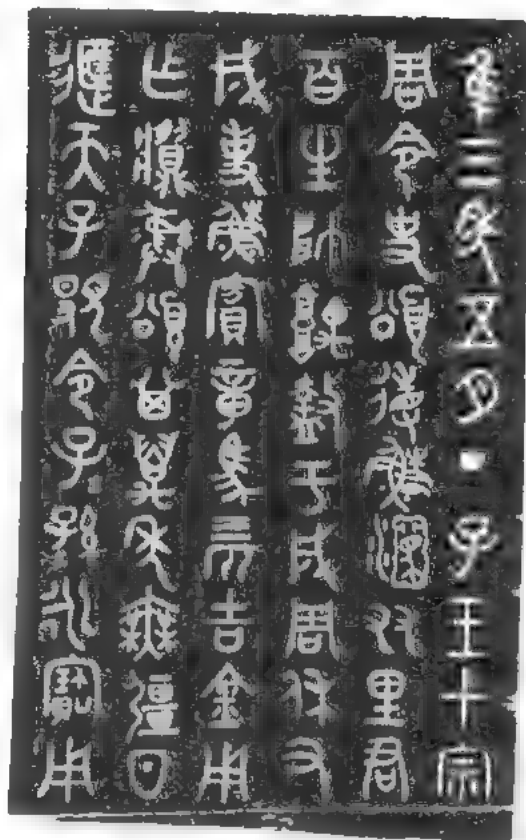 隹三年五月丁子王才宗
周令史頌省穌友里君
百生帥盩于成周休又
成事穌賓章馬四匹吉金用
乍䵼彝頌其萬年無疆日
天子顯令子孫永寶用